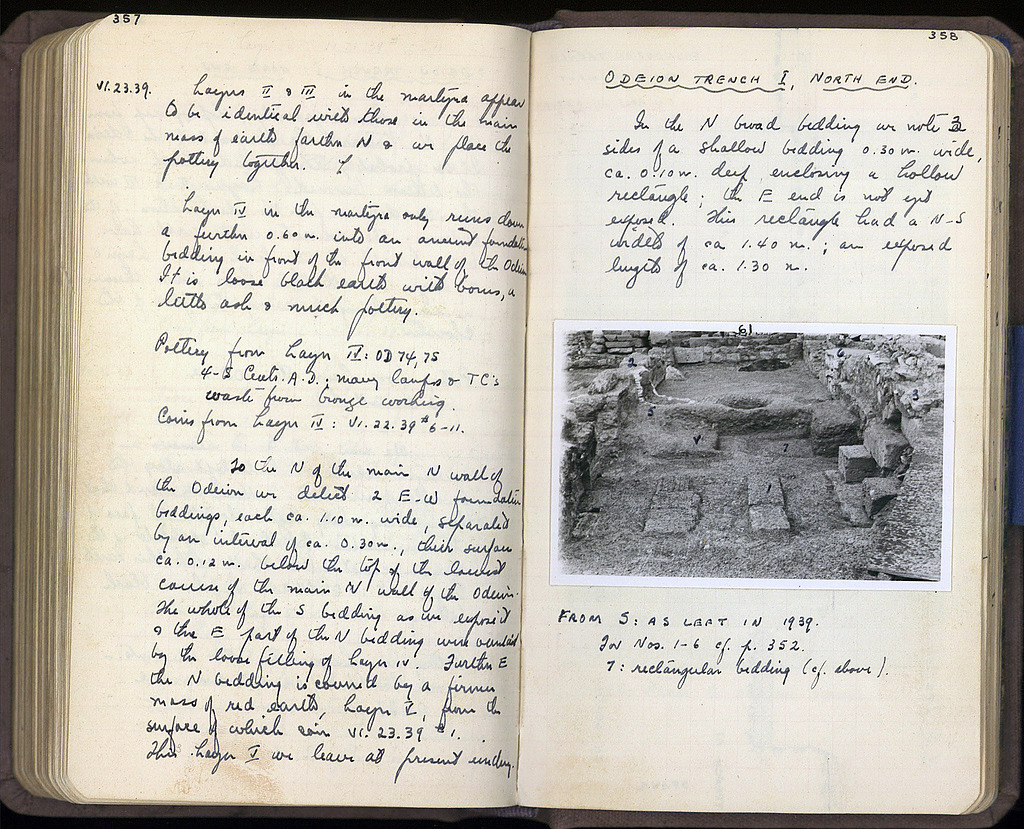 357
VI.23.39.
Layers II & III in the martyra appear
to be identical with those in the main
mass of earth farther N & we place the
pottery together.
Layer IV in the martyra only runs down
a further 0.60 m. into an ancient foundation
bedding in front of the front wall of the Odeion.
It is loose black earth with bones, a
little ash & much pottery.
Pottery from Layer IV: OD 74, 75
4-5 Cents. A.D.; many lamps & TC's
waste from bronze working.
Coins from Layer IV: VI.22.39 #6-11.
To the N of the main N wall of
the Odeion we detect 2 E-W foundation
beddings, each ca. 1.10 m. wide, separated
by an interval of ca. 0.30 m., their surface
ca. 0.12 m. below the top of the lowest
course of the main N wall of the Odeion.
The whole of the S bedding as we expose it
& the E part of the N bedding were overlaid
by the loose filling of Layer IV. Further E
the N bedding is covered by a firmer
mass of red earth, Layer V, from the
surface of which coin VI.23.39 #1.
This Layer V we leave at present undug.
358
ODEION TRENCH I, NORTH END.
In the N broad bedding we note 3
sides of a shallow bedding 0.30 m. wide,
ca. 0.10 m. deep, enclosing a hollow
rectangle; the E end is not yet
exposed. This rectangle had a N-S
width of ca 1.40 m.; an exposed
length of ca. 1.30 m.
61
2
6
3
5
4
7
1
FROM S: AS LEFT IN 1939.
For Nos. 1-6 cf. p. 352.
7: rectangular bedding (cf. above).